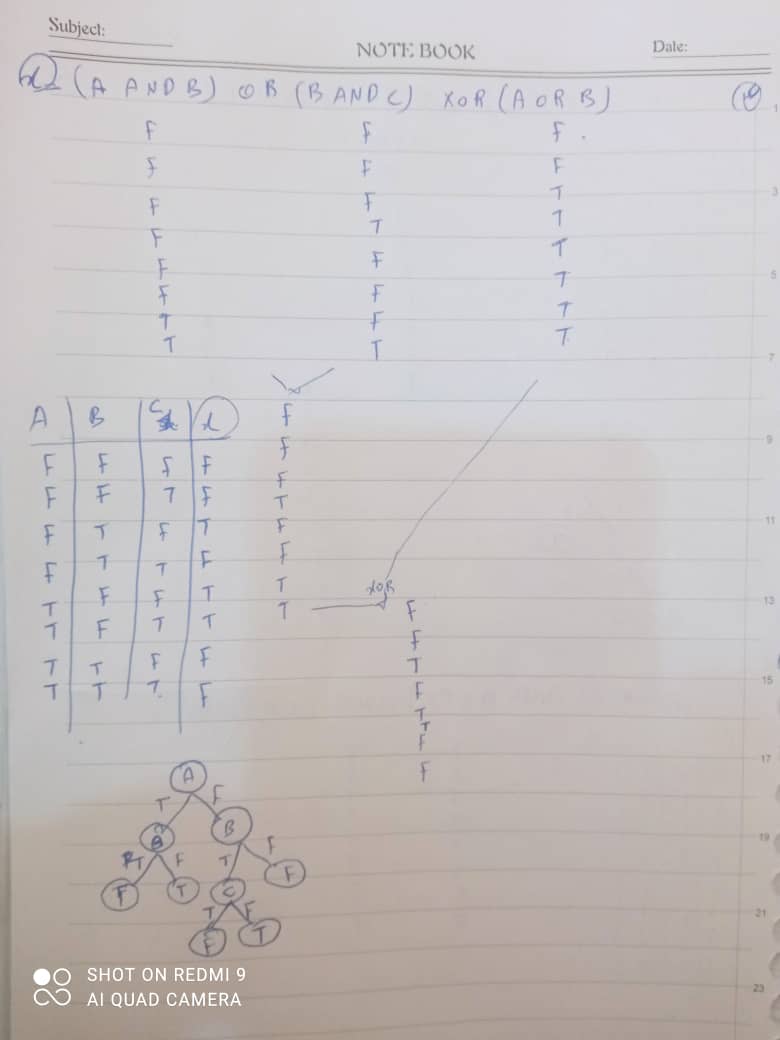 Subject:
NOTE BOOK
Date:
(A AND B) OR (B AND C) XOR (A OR B)
F F F
F F F
F F T
F T T
F F T
F F T
T F T
T T T
A B C
F F F F
F F T F
F T F T
F T T F
T F F T
T F T T
T T F F
T T T F
F
F
F
T
F
F
T
T
XOR
F
F
T
F
T
T
F
F
A
T F
B B
T F T F
F T C F
T F
F T
1
3
5
7
9
11
13
15
17
19
21
23
SHOT ON REDMI 9
AI QUAD CAMERA